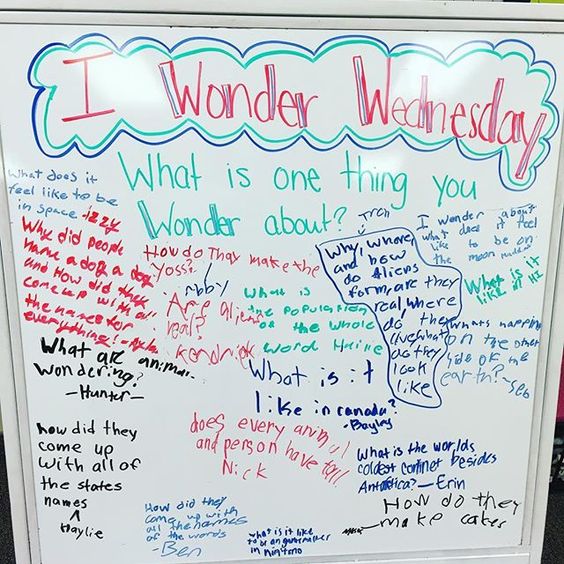 I Wonder Wednesday
What is one thing you
Wonder about?
What does it
feel like to be
in space -Izzy
Why did people
name a dog a dog
and How did they
come up with all
the names for
everything?
How do They make the
Are aliens
real?
Kendrick
What is
the population
of the whole
Why, where,
and how
do Aliens
form, are they
real, where
do they
live what
do they
look
like
I wonder about
what does it feel
like to be on
the moon
What is it
like in
whats happing
on the other
side of the
earth? - Seb
What are animals
wondering?
-Hunter-
What is it
like in canada?
-Bayley
how did they
come up
with all of
the states
names
^
Haylie
does every
and person have
Nick
What is the worlds
coldest continet besides
Antarctica? - Erin
How did they
come up with
all the names
of the words
-Ben
what is it like
to be an
in
How do they
make cakes